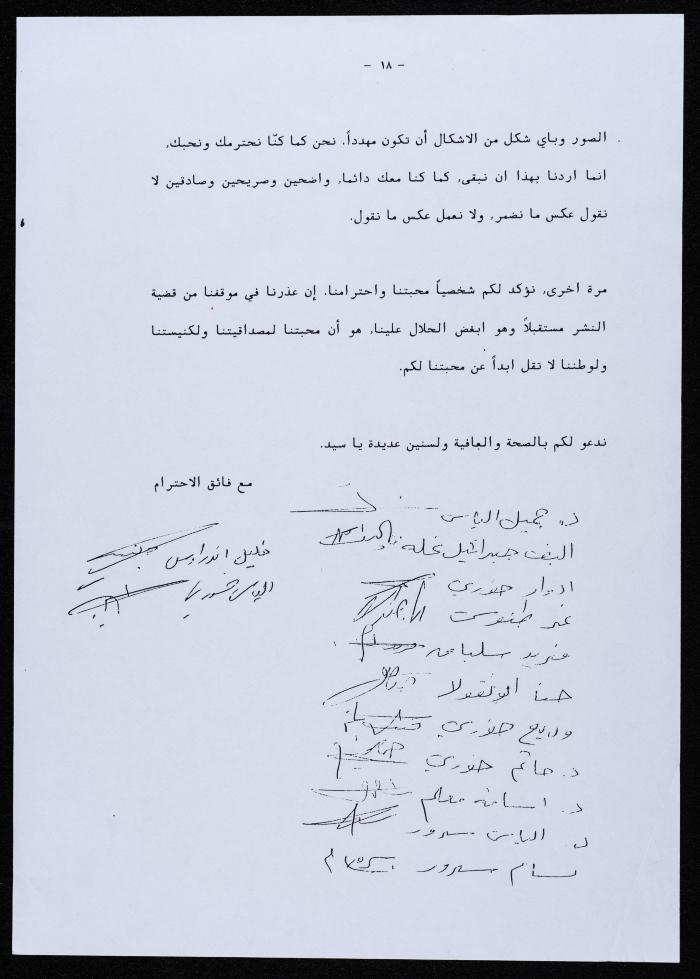 - ١٨ -
الصور وباي شكل من الاشكال أن تكون مهدداً. نحن كما كنّا نحترمك ونحبك,
انما اردنا بهذا ان نبقى, كما كنا معك دائما, واضحين وصريحين وصادقين لا
نقول عكس ما نضمر, ولا نعمل عكس ما نقول.
مرة اخرى, نؤكد لكم شخصياً محبتنا واحترامنا. إن عذرنا في موقفنا من قضية
النشر مستقبلاً وهو ابغض الحلال علينا, هو أن محبتنا لمصداقيتنا ولكنيستنا
ولوطننا لا تقل ابداً عن محبتنا لكم.
ندعو لكم بالصحة والعافية ولسنين عديدة يا سيد.
مع فائق الاحترام
د. جميل الياس
جبرائيل نخلة
ادوار خوري
نمر طنوس
فريد سليمان
حنا ابو نقولا
وديع خوري
د. حاتم خوري
د. اسامة معلم
د. الياس سرور
بسام سرور
خليل اندراوس
الياس